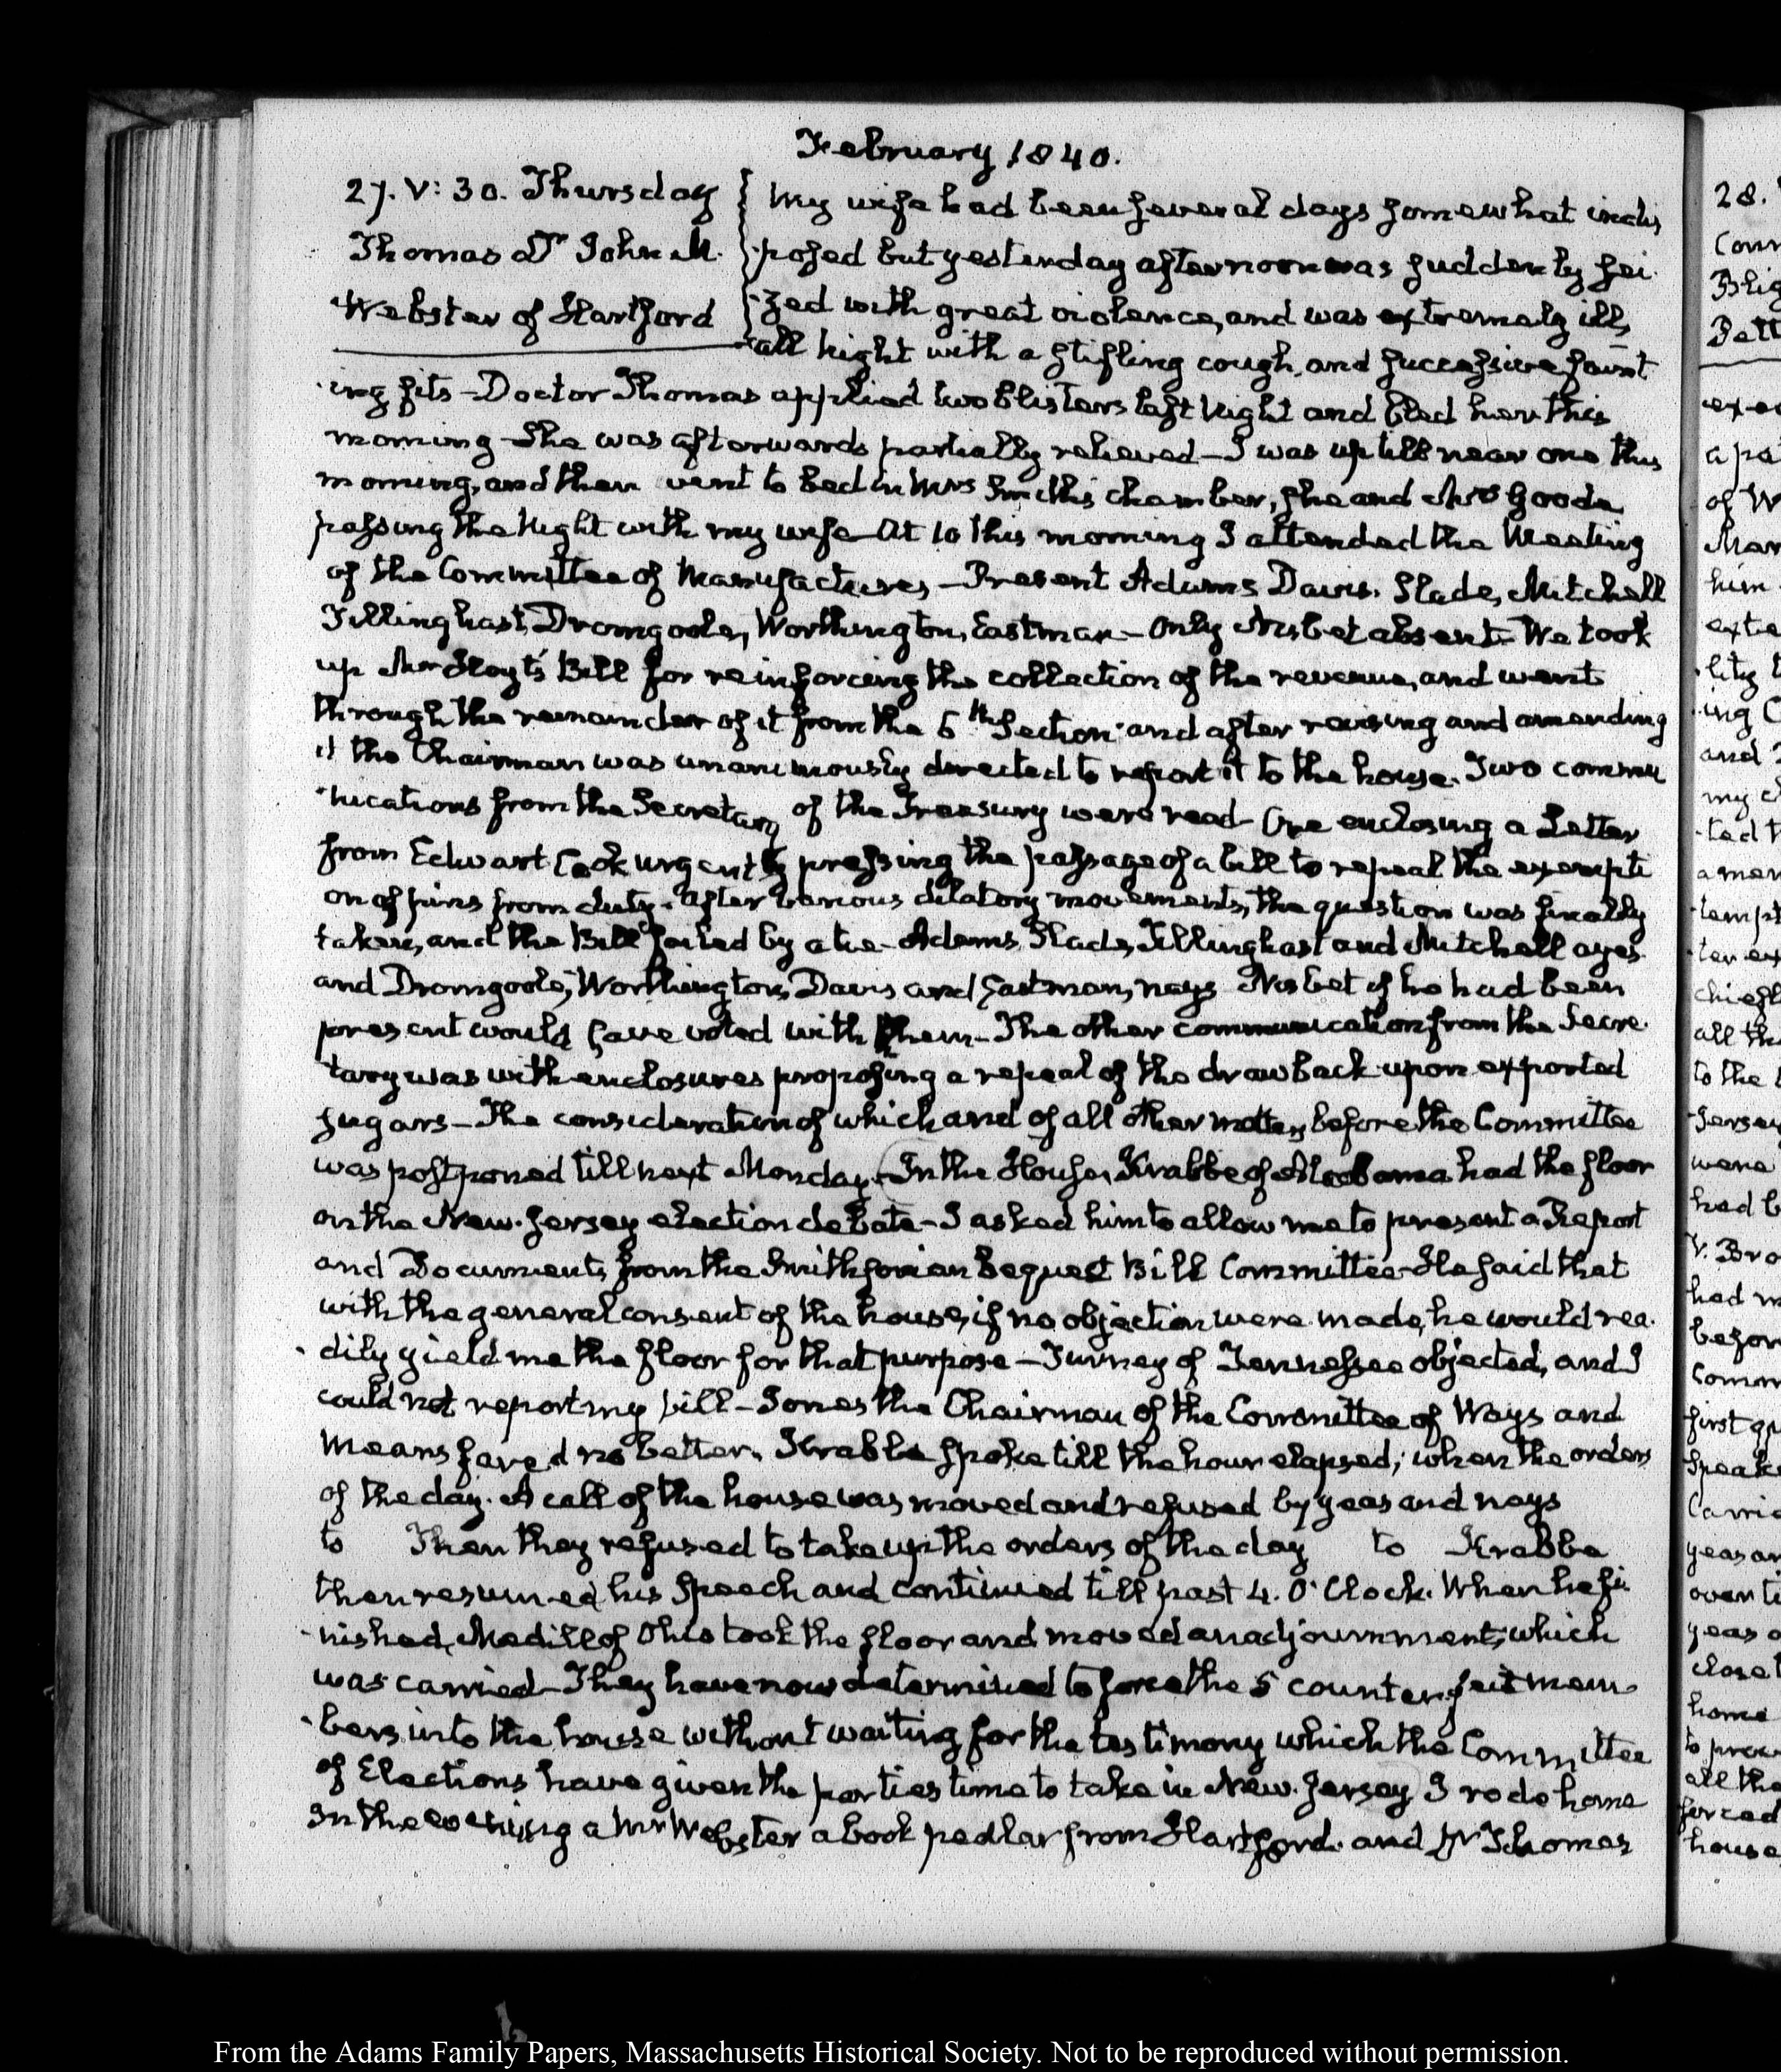 February 1840.
27. V: 30. Thursday
Thomas Dr John M.
Webster of Hartford
My wife had been several days somewhat indis
posed but yesterday afternoon was suddenly sei
zed with great violence, and was extremely ill,
all Night with a stifling cough, and successive faint
ing fits - Doctor Thomas applied two blisters last Night and bled her this
morning - She was afterwards partially relieved - I was up till near one this
morning, and then went to bed in Mrs Smith's chamber, she and Mrs Goods
passing the Night with my wife - At 10 this morning I attended the Meeting
of the Committee of Manufactures - Present Adams Davis. Slade, Mitchell
Tillinghast, Dromgoole, Worthington, Eastman - Only Nisbet absent - We took
up Mr Hoyt's Bill for reinforcing the collection of the revenue, and went
through the remainder of it from the 6th Section and after revising and amending
it the Chairman was unanimously directed to report it to the house. Two commu
nications from the Secretary of the Treasury were read - One enclosing a Letter
from Edward Cook urgently pressing the passage of a bill to repeal the exempti
on of pins from duty. After various dilatory movements, the question was finally
taken, and the Bill failed by a tie - Adams, Slade, Tillinghast and Mitchell ayes
and Dromgoole, Worthington, Davis and Eastman, nays Nisbet if he had been
present would have voted with them - The other communication from the Secre
tary was with enclosures proposing a repeal of the drawback upon exported
sugars - The consideration of which and of all other matters before the Committee
was postponed till next Monday - In the House, Krabbe of Alabama had the floor
on the New-Jersey election debate - I asked him to allow me to present a Report
and Documents from the Smithsonian bequest Bill Committee - He said that
with the general consent of the house, if no objection were made, he would rea
dily yield me the floor for that purpose - Turney of Tennessee objected, and I
could not report my bill - Jones the Chairman of the Committee of Ways and
Means fared no better. Krabbe spoke till the hour elapsed; when the orders
of the day. A call of the house was moved and refused by yeas and nays
to Then they refused to take up the orders of the day to Krabbe
then resumed his Speech and continued till past 4. O'Clock. When he fi
nished, Medill of Ohio took the floor and moved an adjournment, which
was carried - They have now determined to force the 5 counterfeit mem
bers into the house without waiting for the testimony which the Committee
of Elections have given the parties time to take in New-Jersey I rode home
In the evening a Mr Webster a book pedlar from Hartford. and Dr Thomas
28.
From the Adams Family Papers, Massachusetts Historical Society. Not to be reproduced without permission.